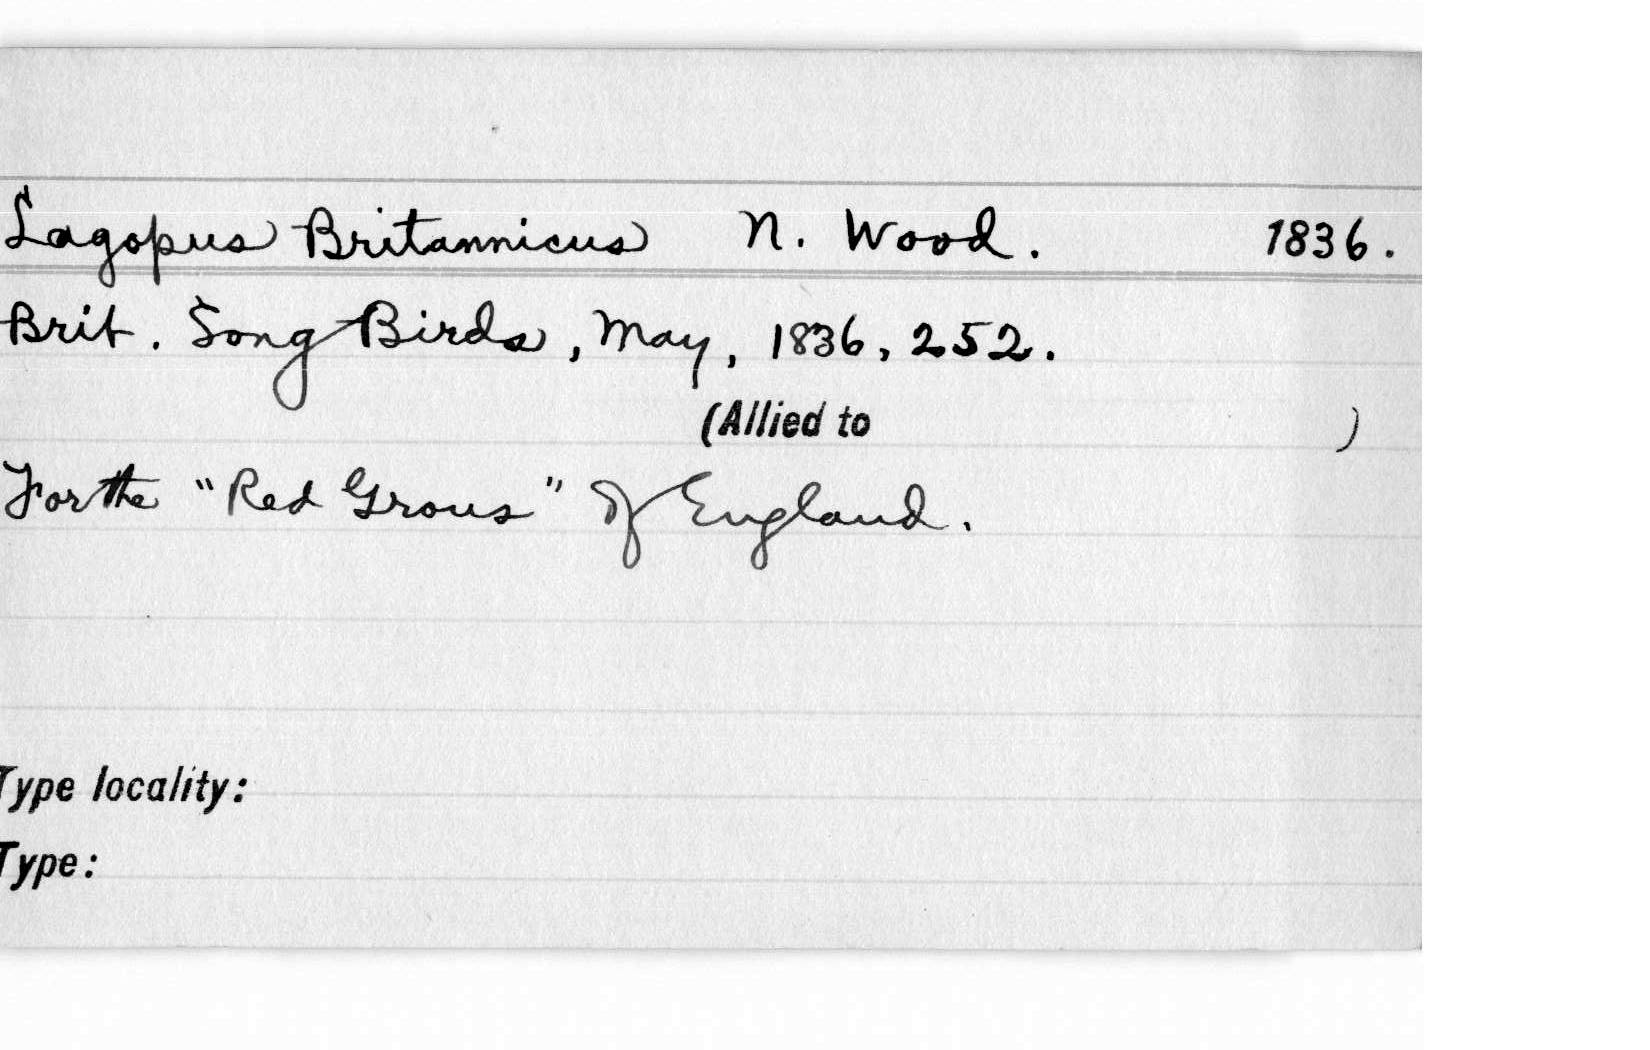 Lagopus Britannicus N. Wood. 1836.
Brit. Song Birds, May, 1836, 252.
(Allied to )
For the "Red Grous" of England.
Type locality:
Type: